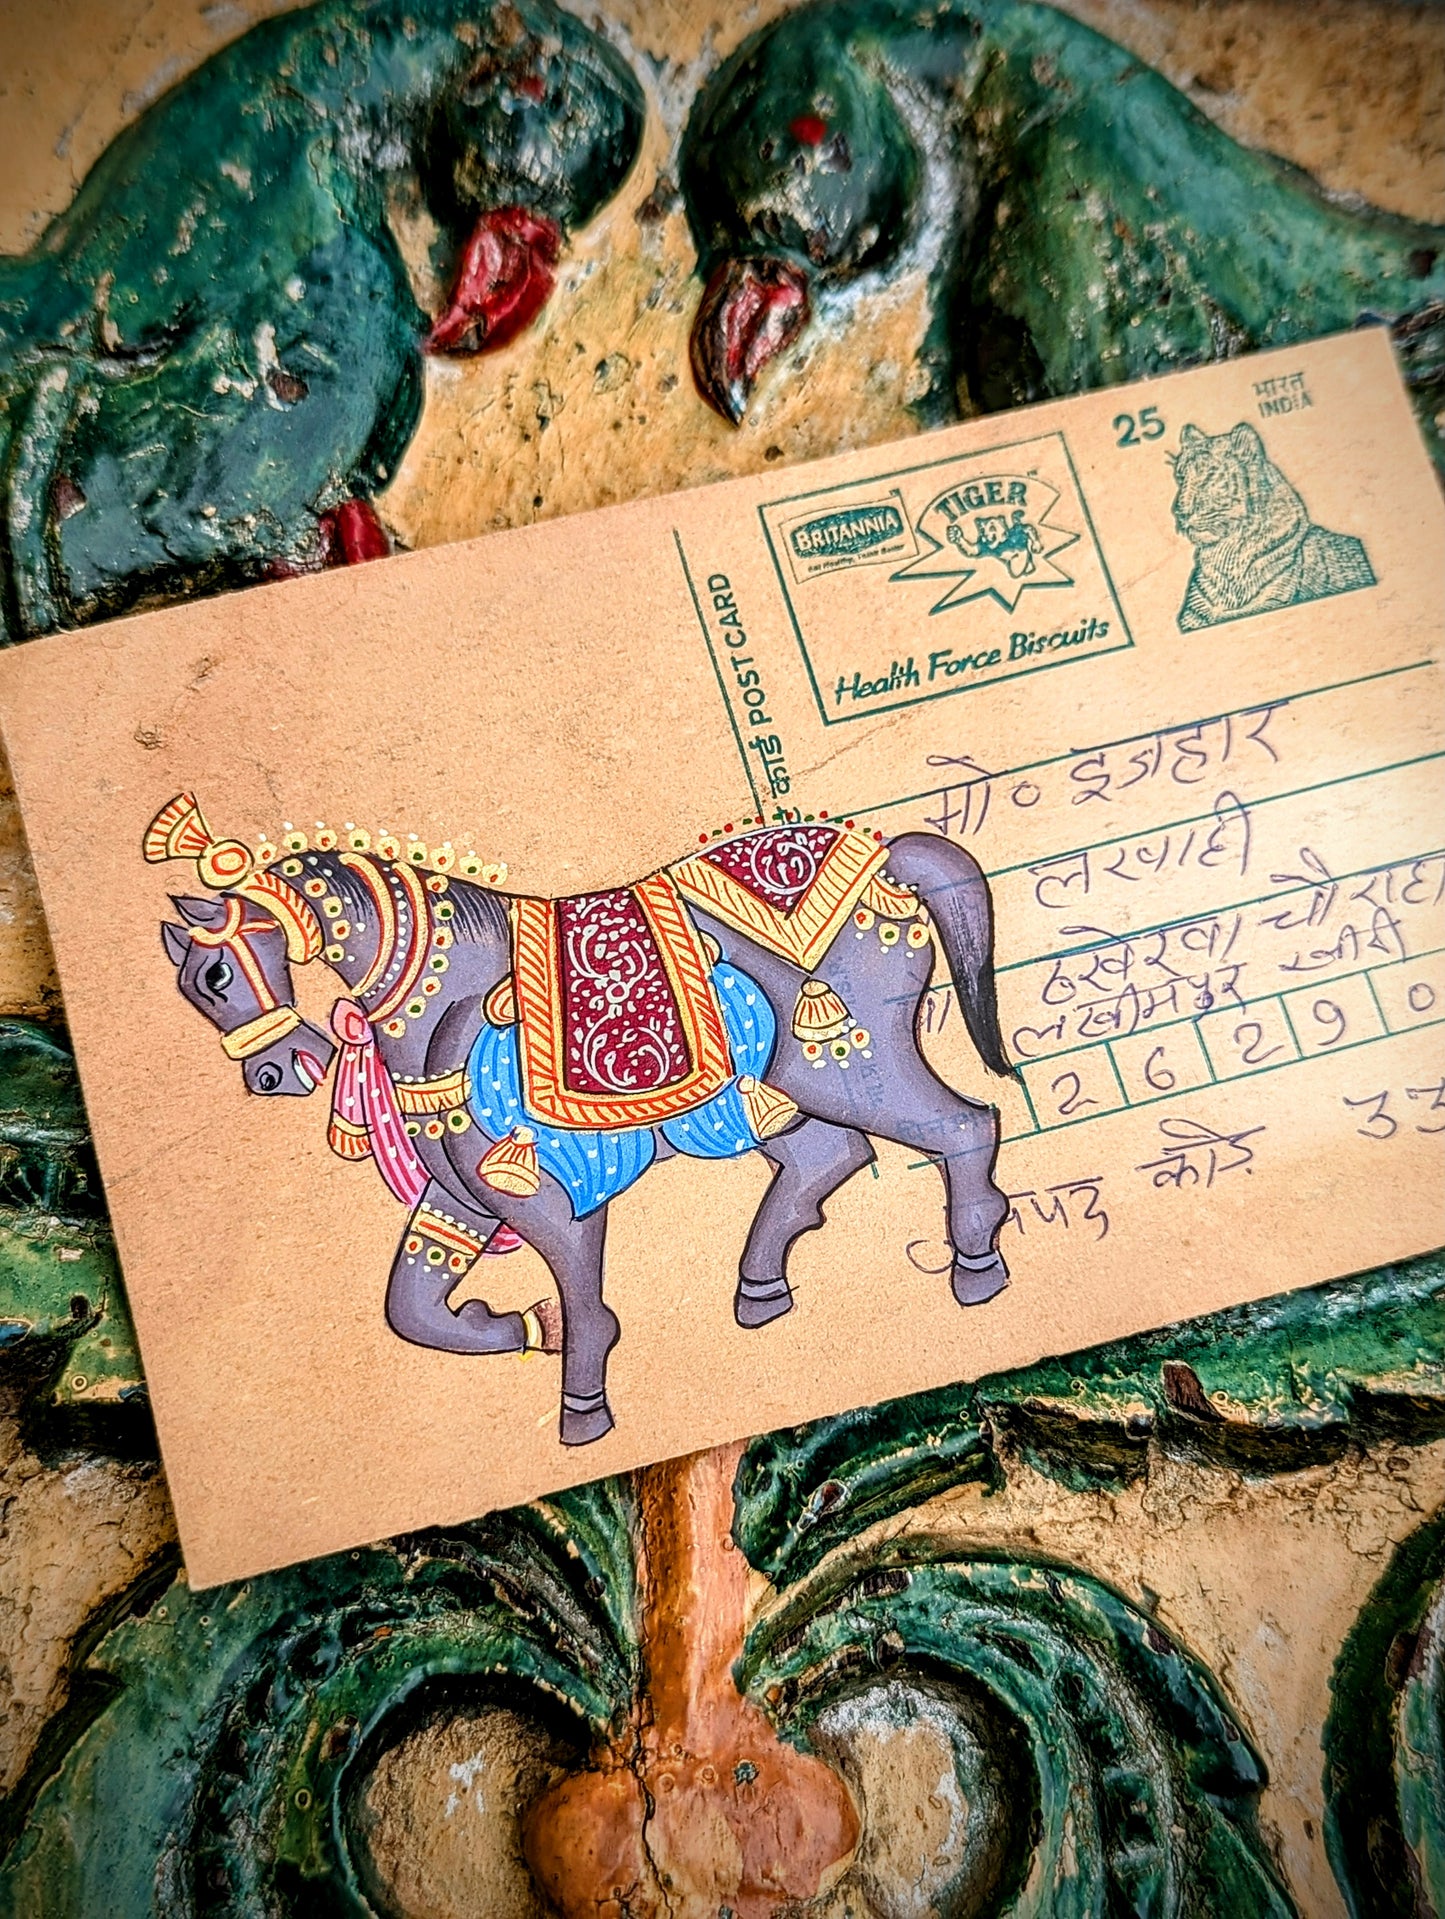 भारत
INDIA
25
BRITANNIA
Eat Healthy, Think Better
TIGER
Health Force Biscuits
कार्ड POST CARD
मो० इजहार
लखाही
ढखेरवा चौराहा
लखीमपुर खीरी
2 6 2 9 0
कोड़